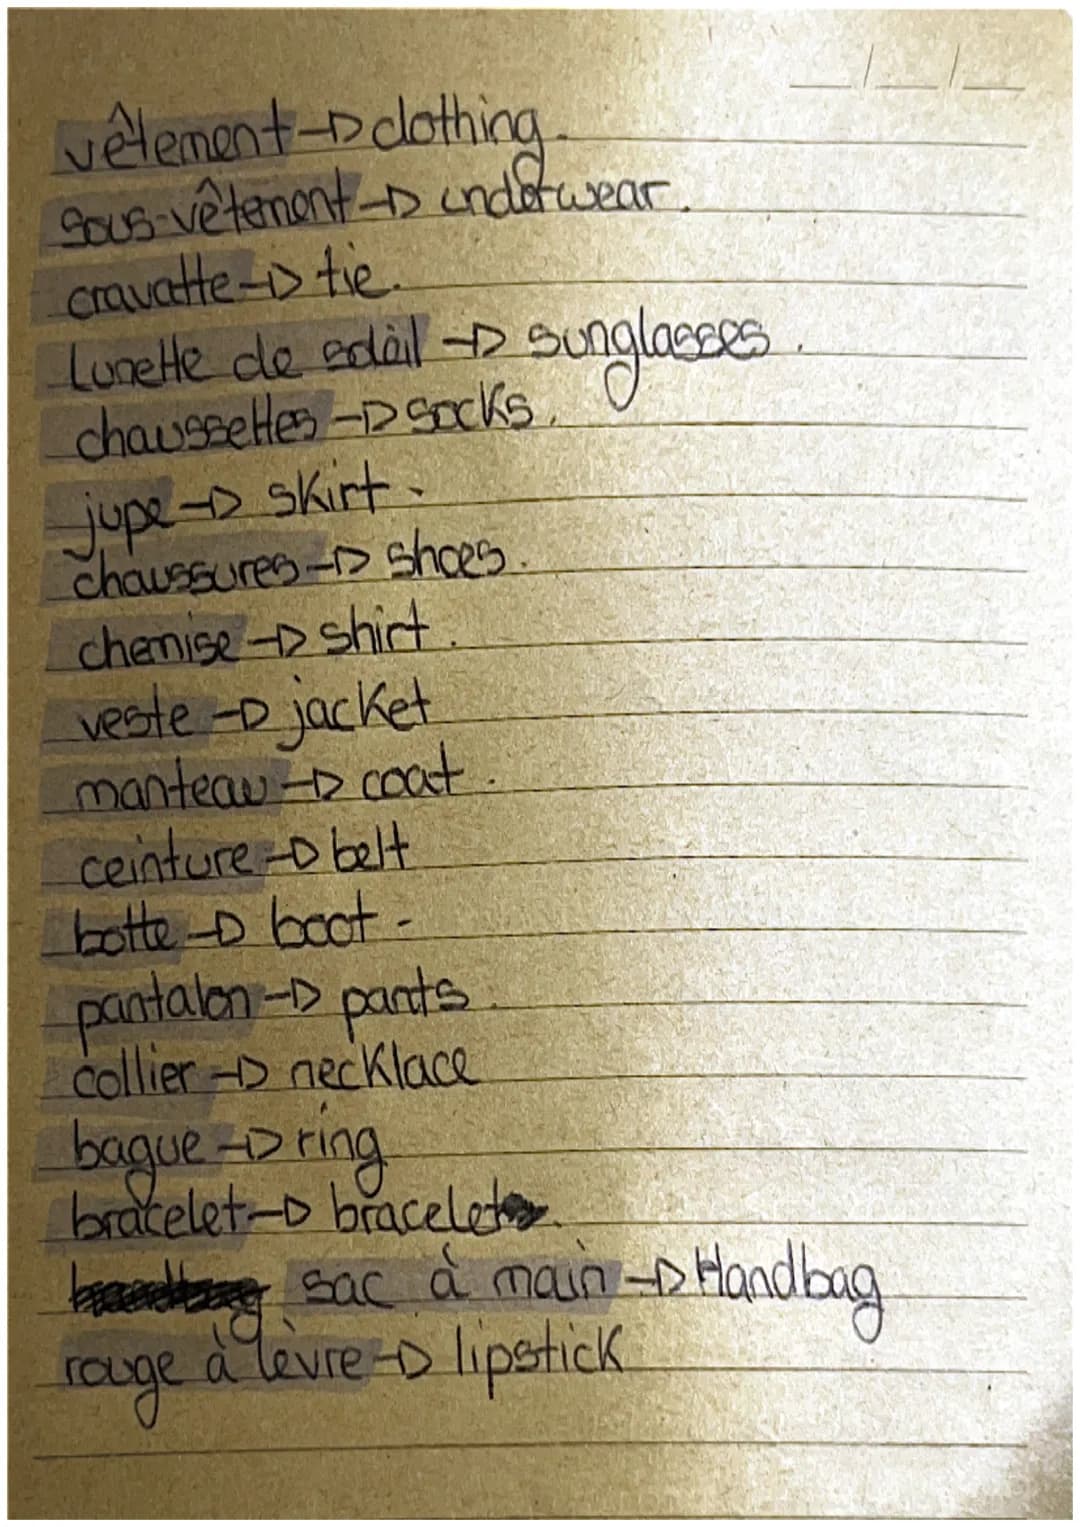 vêtement → clothing.
sous-vêtement → underwear.
cravatte → tie.
Lunette de soleil → sunglasses.
chaussettes → socks.
jupe → skirt.
chaussures → shoes.
chemise → shirt.
veste → jacket
manteau → coat.
ceinture → belt
botte → boot -
pantalon → pants.
collier → necklace
bague → ring
bracelet → bracelet.
sac à main → Handbag
rouge à lèvre → lipstick